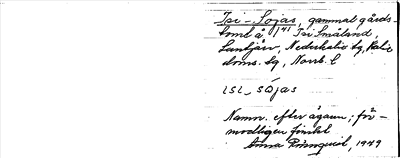 Isi-Sojas, gammal gårds-
tomt å 141 Isi Småland,
Luntjärv, Nederkalix sg, Kalix
doms. sg, Norrb. l
isi_sojas
Namn. efter ägaren; för-
modligen finskt
Anna 1949